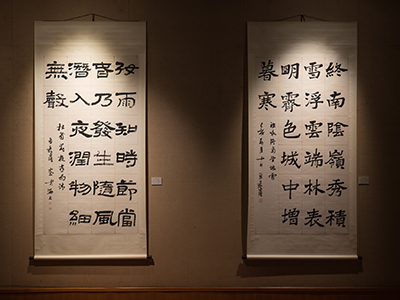 終南陰嶺秀積
雪浮雲端林表
明霽色城中增
暮寒
好雨知時節當
春乃發生隨風
潛入夜潤物細
無聲